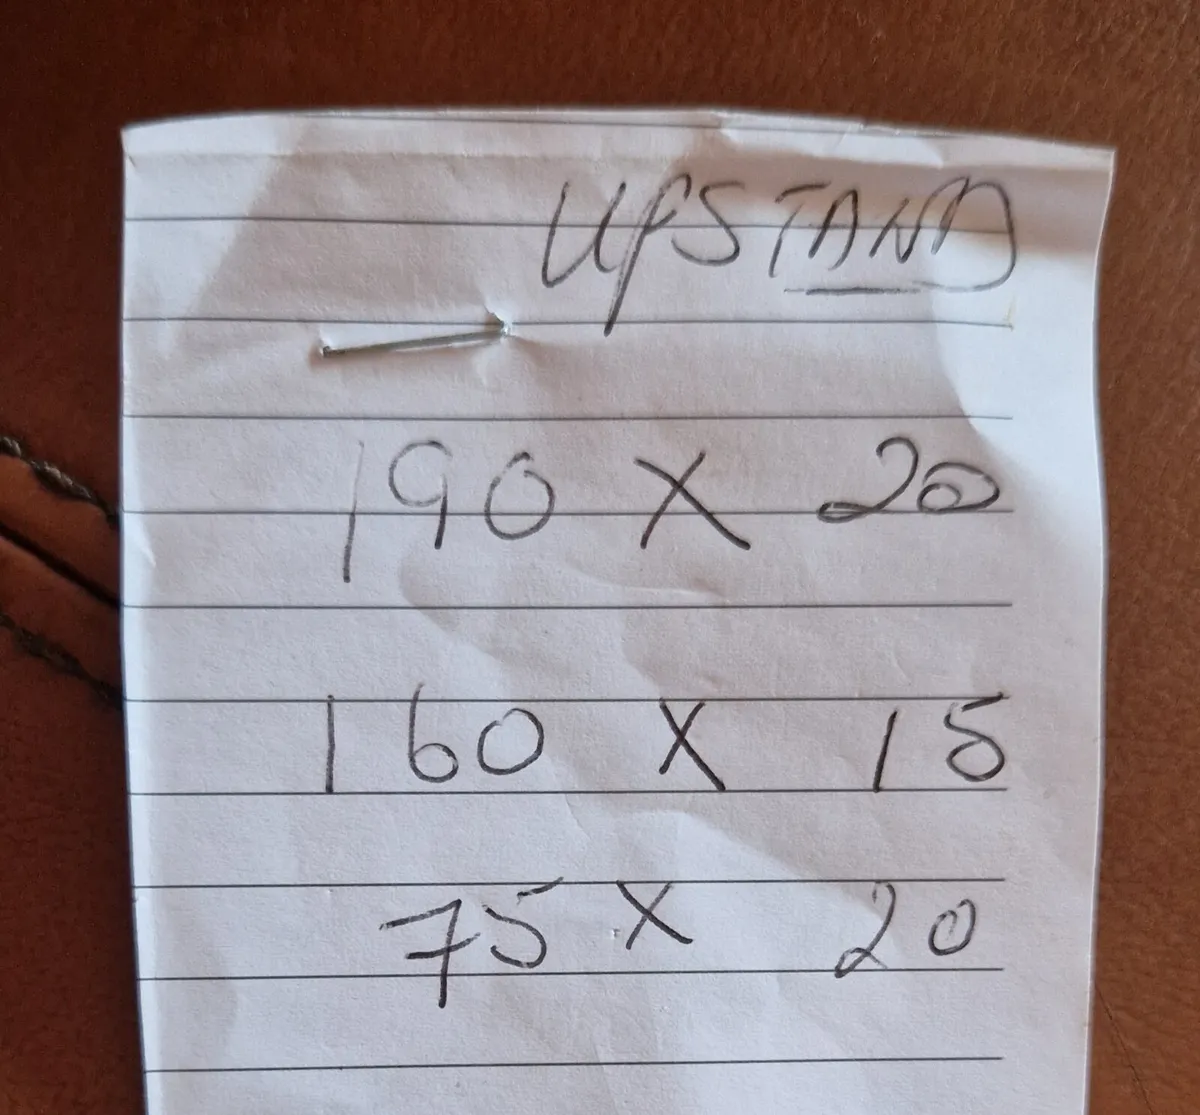 UPSTAND
190 X 20
160 X 15
75 X 20